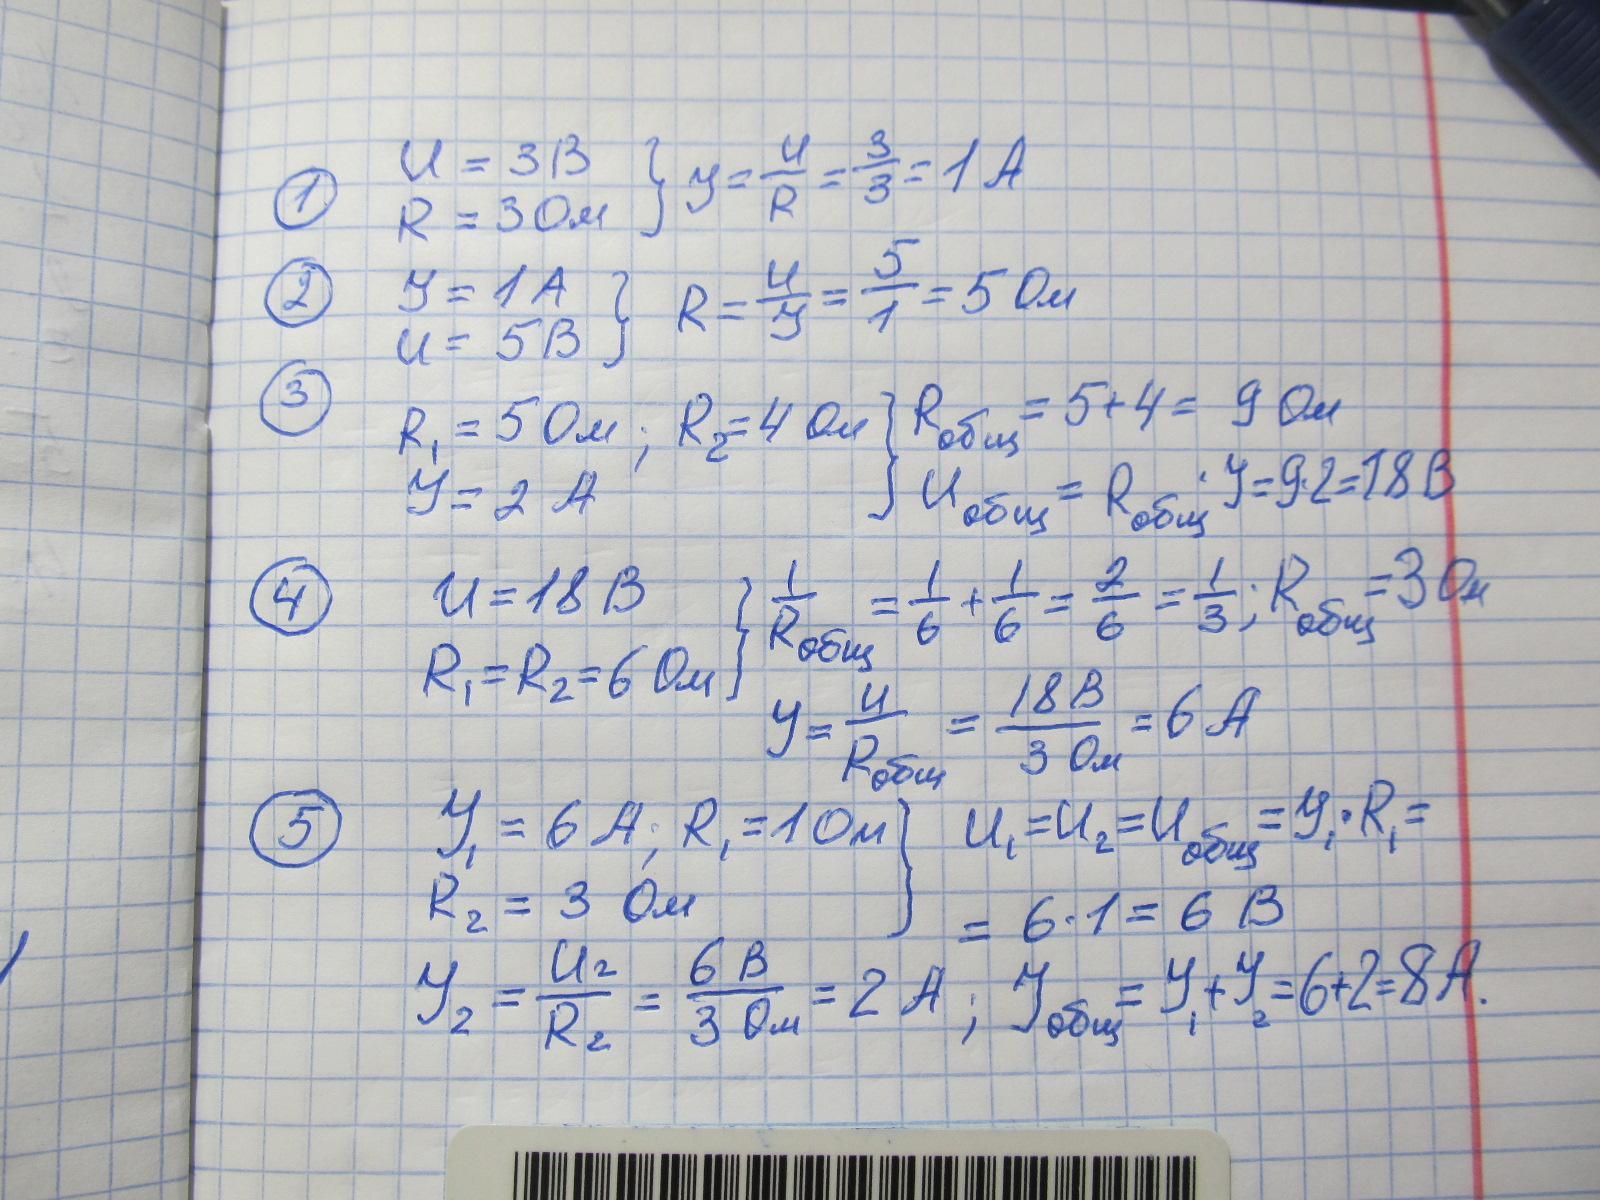 ① U = 3 В
R = 3 Ом } У = U/R = 3/3 = 1 А
② У = 1 А
U = 5 В } R = U/У = 5/1 = 5 Ом
③ R₁ = 5 Ом ; R₂ = 4 Ом } Rобщ = 5+4 = 9 Ом
У = 2 А Uобщ = Rобщ · У = 9·2 = 18 В
④ U = 18 В } 1/Rобщ = 1/6 + 1/6 = 2/6 = 1/3 ; Rобщ = 3 Ом
R₁ = R₂ = 6 Ом
У = U/Rобщ = 18 В/3 Ом = 6 А
⑤ У₁ = 6 А ; R₁ = 1 Ом } U₁ = U₂ = Uобщ = У₁ · R₁ =
R₂ = 3 Ом = 6 · 1 = 6 В
У₂ = U₂/R₂ = 6 В/3 Ом = 2 А ; Уобщ = У₁ + У₂ = 6+2 = 8 А.